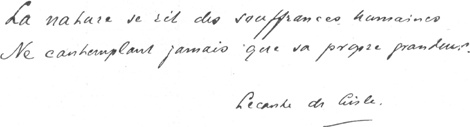 La nature se rit des souffrances humaines
Ne contemplant jamais que sa propre grandeur.
Leconte de Lisle.